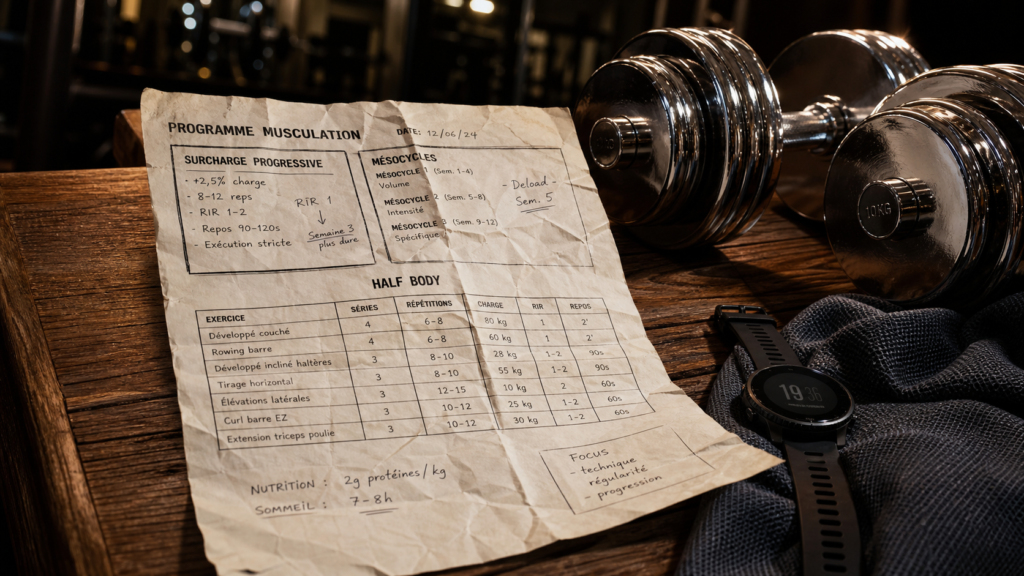 PROGRAMME MUSCULATION
DATE: 12/06/24
SURCHARGE PROGRESSIVE
+2,5% charge
- 8-12 reps
- RIR 1-2
- Repos 90-120s
- Exécution stricte
RiR 1
↓
Semaine 3
plus dure
MÉSOCYCLES
MÉSOCYCLE 1 (Sem. 1-4)
Volume
MÉSOCYCLE 2 (Sem. 5-8)
Intensité
MÉSOCYCLE 3 (Sem. 9-12)
Spécifique
- Deload -
Sem. 5
HALF BODY
EXERCICE SÉRIES RÉPÉTITIONS CHARGE RIR REPOS
Développé couché 4 6-8 80 kg 1 2'
Rowing barre 4 6-8 60 kg 1 2'
Développé incliné haltères 3 8-10 28 kg 1-2 90s
Tirage horizontal 3 8-10 55 kg 1-2 90s
Élévations latérales 3 12-15 10 kg 2 60s
Curl barre EZ 3 10-12 25 kg 1-2 60s
Extension triceps poulie 3 10-12 30 kg 1-2 60s
NUTRITION : 2g protéines/kg
SOMMEIL : 7-8h
FOCUS
- technique
régularité
- progression
10KG